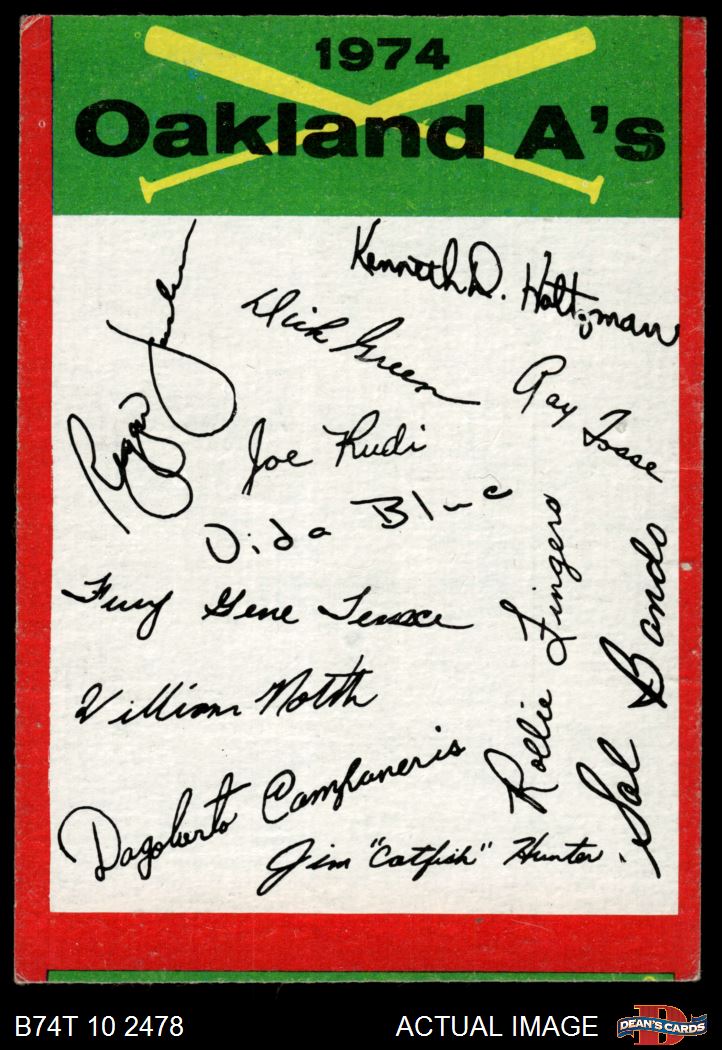 1974
Oakland A's
Kenneth D. Holtzman
Dick Green
Reggie Jackson
Ray Fosse
Joe Rudi
Vida Blue
Fury Gene Tenace
Rollie Fingers
Sal Bando
William North
Dagoberto Campaneris
Jim "Catfish" Hunter
B74T 10 2478
ACTUAL IMAGE
DEAN'S CARDS